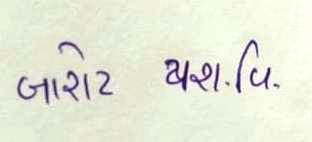 બારોટ યશ.વિ.